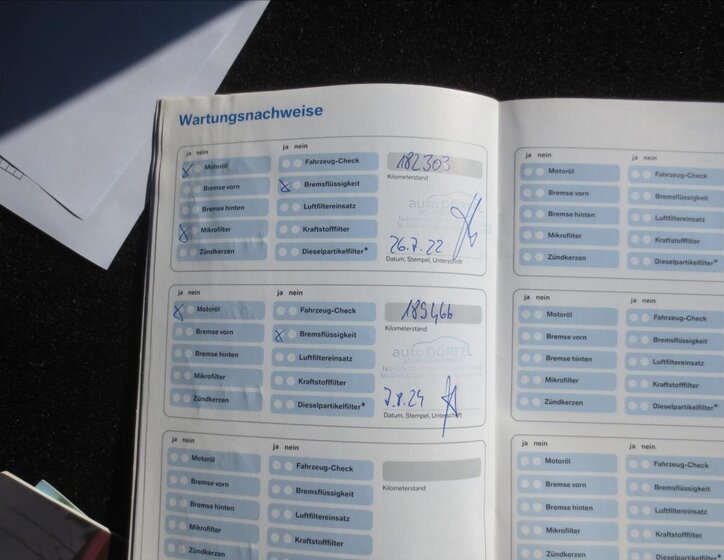 Wartungsnachweise
ja nein
ja nein
Motoröl
Bremse vorn
Bremse hinten
Mikrofilter
Zündkerzen
Fahrzeug-Check
Bremsflüssigkeit
Luftfiltereinsatz
Kraftstofffilter
Dieselpartikelfilter*
182303
Kilometerstand
auto
26.7.22
Datum, Stempel, Unterschrift
ja nein
ja nein
Motoröl
Bremse vorn
Bremse hinten
Mikrofilter
Zündkerzen
Fahrzeug-Check
Bremsflüssigkeit
Luftfiltereinsatz
Kraftstofffilter
Dieselpartikelfilter*
189466
Kilometerstand
auto DÖRFEL
7.8.24
Datum, Stempel, Unterschrift
ja nein
ja nein
Motoröl
Bremse vorn
Bremse hinten
Mikrofilter
Zündkerzen
Fahrzeug-Check
Bremsflüssigkeit
Luftfiltereinsatz
Kraftstofffilter
Kilometerstand
ja nein
ja nein
Motoröl
Bremse vorn
Bremse hinten
Mikrofilter
Zündkerzen
Fahrzeug-Check
Bremsflüssigkeit
Luftfiltereinsatz
Kraftstofffilter
Dieselpartikelfilter*
ja nein
ja nein
Motoröl
Bremse vorn
Bremse hinten
Mikrofilter
Zündkerzen
Fahrzeug-Check
Bremsflüssigkeit
Luftfiltereinsatz
Kraftstofffilter
Dieselpartikelfilter*
ja nein
ja nein
Motoröl
Bremse vorn
Bremse hinten
Mikrofilter
Zündkerzen
Fahrzeug-Check
Bremsflüssigkeit
Luftfiltereinsatz
Kraftstofffilter
Dieselpartikelfilter*